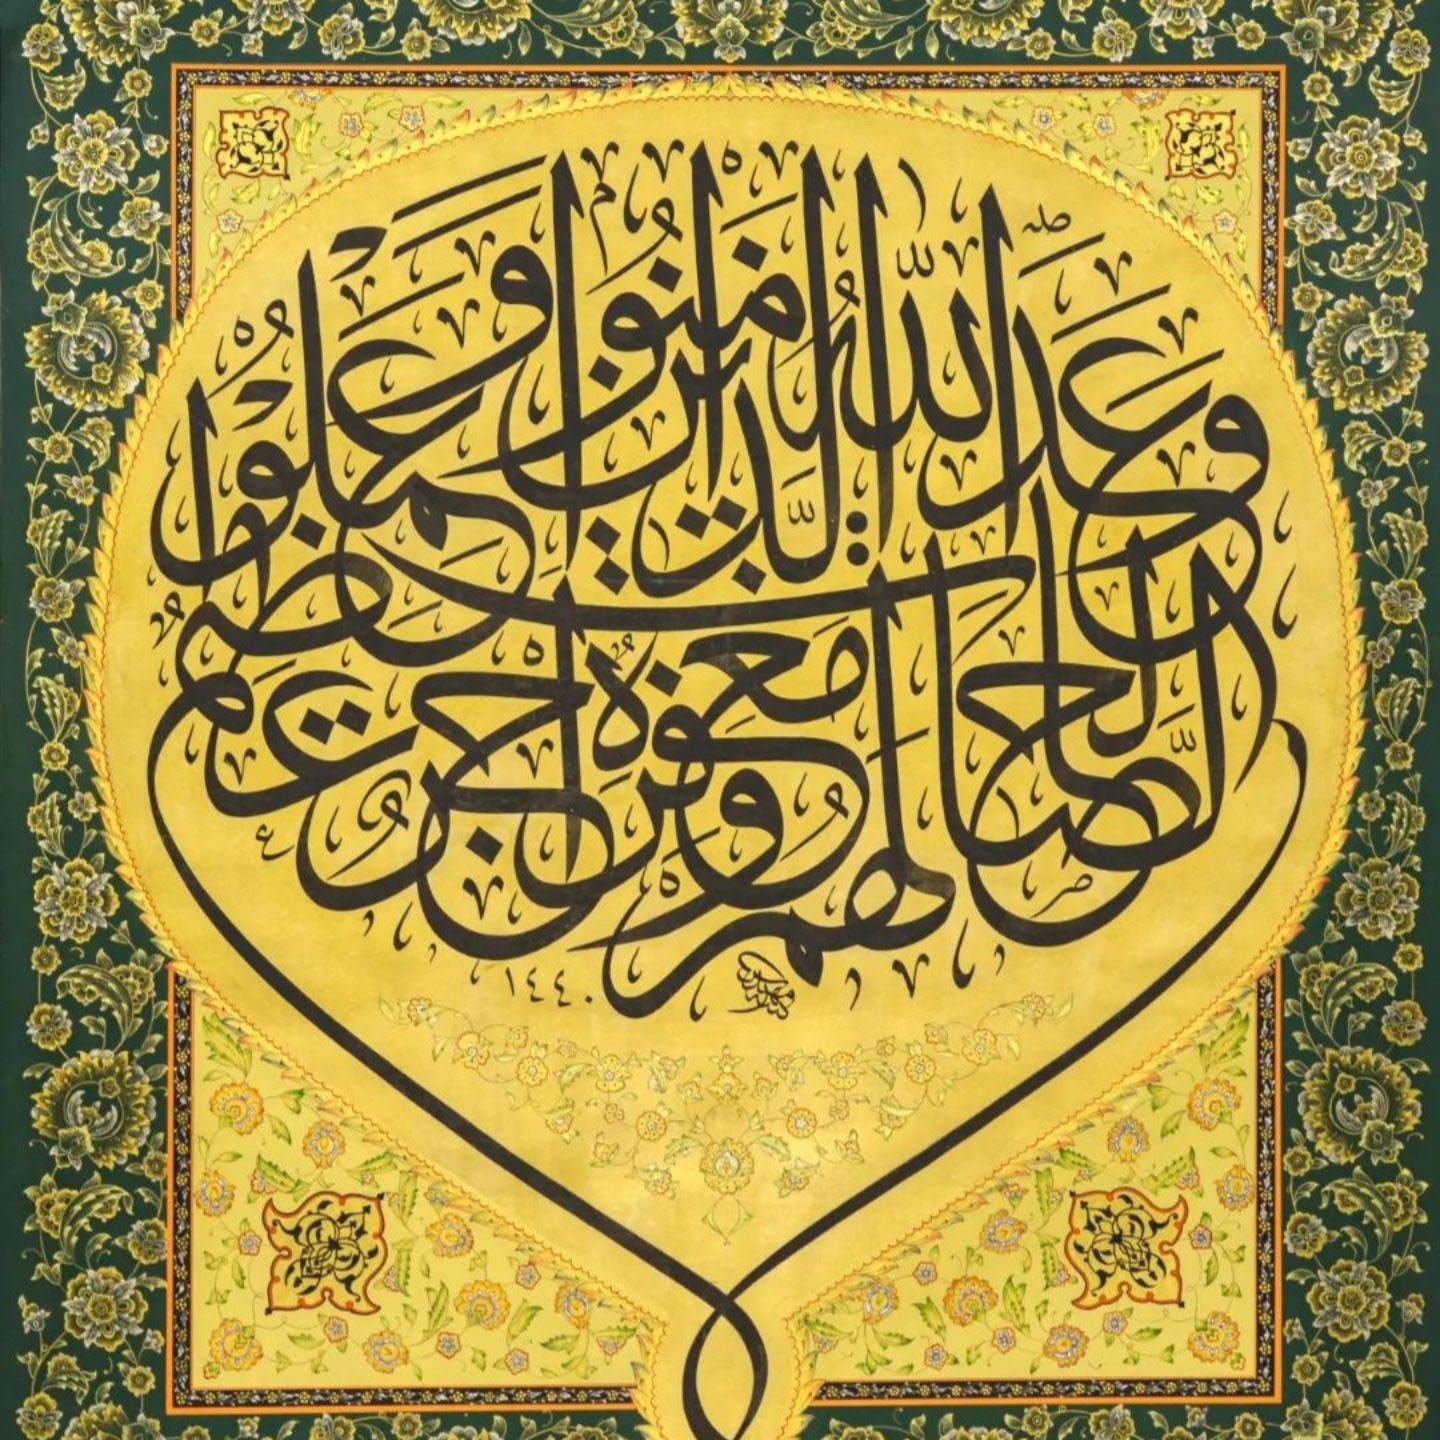 وعد الله الذين امنوا وعملوا
الصالحات لهم مغفرة وأجر عظيم
١٤٤٠